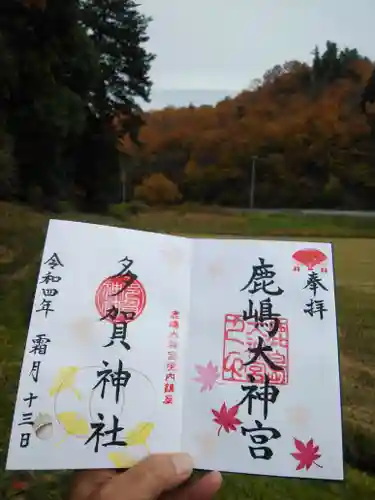 奉拝
鹿嶋大神宮
鹿嶋大神宮境内鎮座
多賀神社
令和四年 霜月 十三日